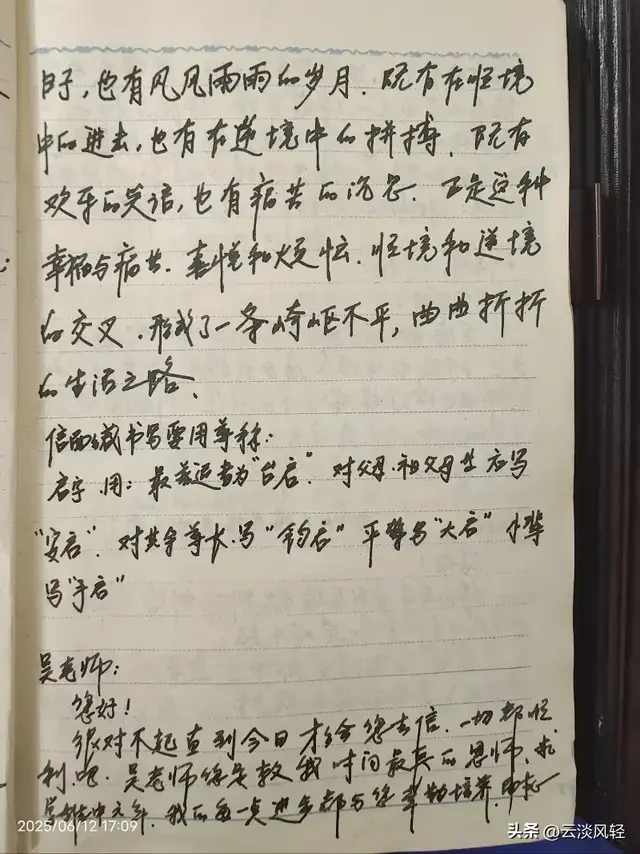 日子，也有风风雨雨的岁月．既有在顺境
中的进去，也有在逆境中的拼搏．既有
欢乐的笑语，也有痛苦的沉思．正是这种
幸福与痛苦．喜悦和烦恼．顺境和逆境
的交叉．形成了一条崎岖不平，曲曲折折
的生活之路．
信函缄书写要用尊称：
启字用：最普遍者为“台启”．对父母．祖父母 应写
“安启”．对其余尊长．写“钧启”平辈写“大启”小辈
写“手启”
吴老师：
您好！
很对不起直到今日才给您去信．一切都顺
利吧．吴老师您是教我时间最长的恩师．
我的每一点进步都与您辛勤培养．
2025/06/12 17:09
头条 @云淡风轻